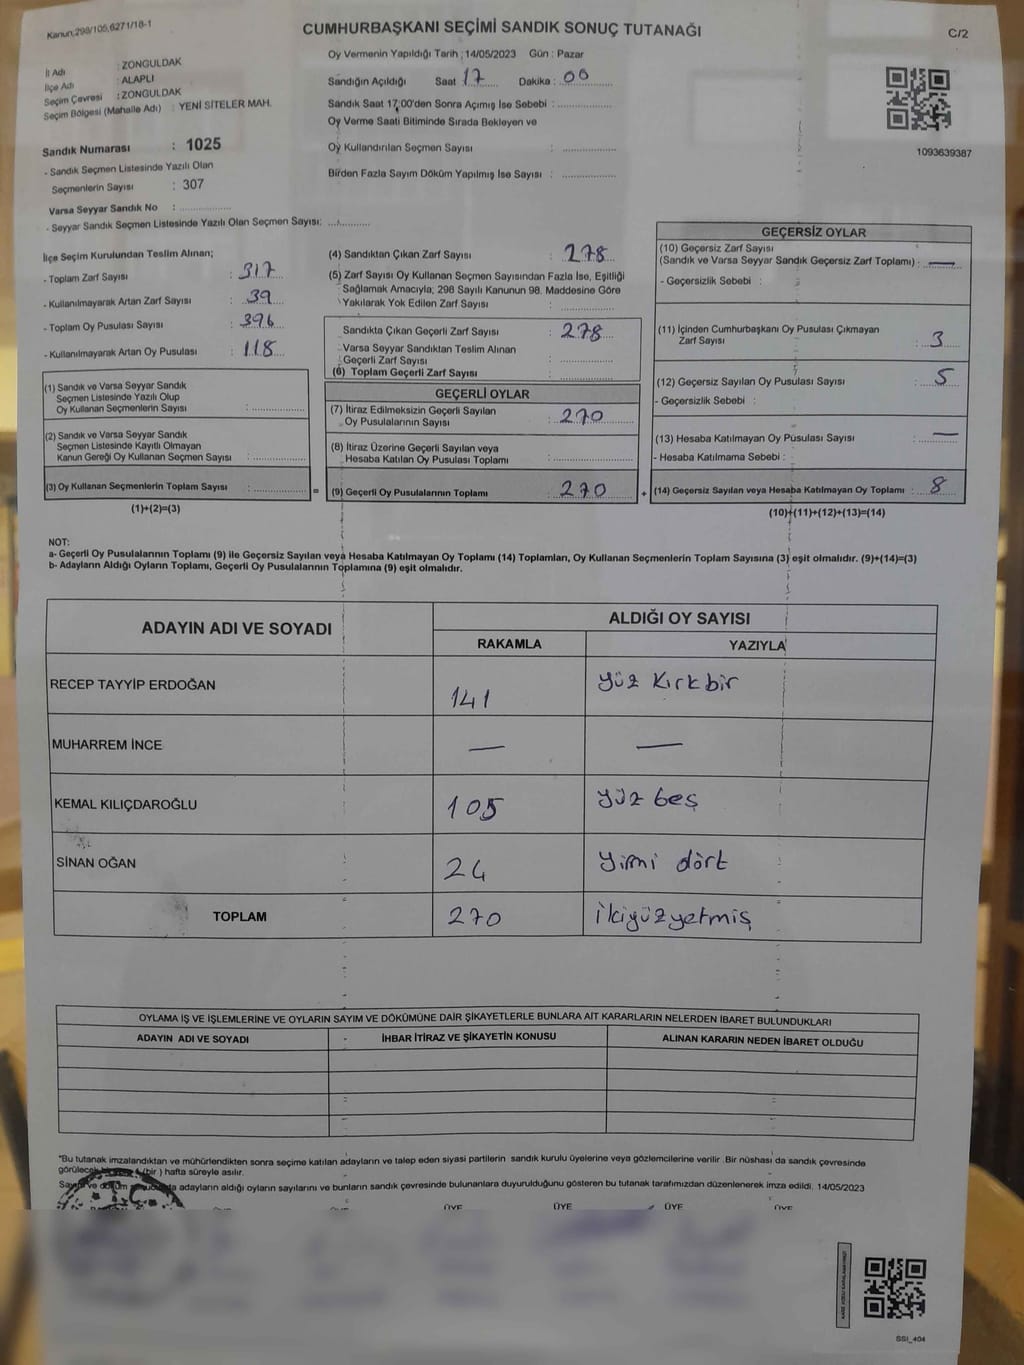 Kanun,298/105,6271/18-1
CUMHURBAŞKANI SEÇİMİ SANDIK SONUÇ TUTANAĞI
C/2
İl Adı : ZONGULDAK
İlçe Adı : ALAPLI
Seçim Çevresi : ZONGULDAK
Seçim Bölgesi (Mahalle Adı) : YENİ SİTELER MAH.
Sandık Numarası : 1025
- Sandık Seçmen Listesinde Yazılı Olan
Seçmenlerin Sayısı : 307
Varsa Seyyar Sandık No :
- Seyyar Sandık Seçmen Listesinde Yazılı Olan Seçmen Sayısı:
Oy Vermenin Yapıldığı Tarih : 14/05/2023 Gün : Pazar
Sandığın Açıldığı Saat 17 Dakika : 00
Sandık Saat 17:00'den Sonra Açımış İse Sebebi :
Oy Verme Saati Bitiminde Sırada Bekleyen ve
Oy Kullandırılan Seçmen Sayısı :
Birden Fazla Sayım Döküm Yapılmış İse Sayısı :
1093639387
İlçe Seçim Kurulundan Teslim Alınan;
- Toplam Zarf Sayısı : 317
- Kullanılmayarak Artan Zarf Sayısı : 39
- Toplam Oy Pusulası Sayısı : 396
- Kullanılmayarak Artan Oy Pusulası : 118
(1) Sandık ve Varsa Seyyar Sandık
Seçmen Listesinde Yazılı Olup
Oy Kullanan Seçmenlerin Sayısı :
(2) Sandık ve Varsa Seyyar Sandık
Seçmen Listesinde Kayıtlı Olmayan
Kanun Gereği Oy Kullanan Seçmen Sayısı :
(3) Oy Kullanan Seçmenlerin Toplam Sayısı :
(1)+(2)=(3)
(4) Sandıktan Çıkan Zarf Sayısı : 278
(5) Zarf Sayısı Oy Kullanan Seçmen Sayısından Fazla İse, Eşitliği
Sağlamak Amacıyla; 298 Sayılı Kanunun 98. Maddesine Göre
Yakılarak Yok Edilen Zarf Sayısı :
Sandıkta Çıkan Geçerli Zarf Sayısı : 278
Varsa Seyyar Sandıktan Teslim Alınan
Geçerli Zarf Sayısı :
(6) Toplam Geçerli Zarf Sayısı :
GEÇERLİ OYLAR
(7) İtiraz Edilmeksizin Geçerli Sayılan
Oy Pusulalarının Sayısı : 270
(8) İtiraz Üzerine Geçerli Sayılan veya
Hesaba Katılan Oy Pusulası Toplamı :
= (9) Geçerli Oy Pusulalarının Toplamı : 270
GEÇERSİZ OYLAR
(10) Geçersiz Zarf Sayısı
(Sandık ve Varsa Seyyar Sandık Geçersiz Zarf Toplamı) : —
- Geçersizlik Sebebi :
(11) İçinden Cumhurbaşkanı Oy Pusulası Çıkmayan
Zarf Sayısı : 3
(12) Geçersiz Sayılan Oy Pusulası Sayısı : 5
- Geçersizlik Sebebi :
(13) Hesaba Katılmayan Oy Pusulası Sayısı : —
- Hesaba Katılmama Sebebi :
+ (14) Geçersiz Sayılan veya Hesaba Katılmayan Oy Toplamı : 8
(10)+(11)+(12)+(13)=(14)
NOT:
a- Geçerli Oy Pusulalarının Toplamı (9) ile Geçersiz Sayılan veya Hesaba Katılmayan Oy Toplamı (14) Toplamları, Oy Kullanan Seçmenlerin Toplam Sayısına (3) eşit olmalıdır. (9)+(14)=(3)
b- Adayların Aldığı Oyların Toplamı, Geçerli Oy Pusulalarının Toplamına (9) eşit olmalıdır.
ADAYIN ADI VE SOYADI
ALDIĞI OY SAYISI
RAKAMLA YAZIYLA
RECEP TAYYİP ERDOĞAN 141 yüz kırkbir
MUHARREM İNCE — —
KEMAL KILIÇDAROĞLU 105 yüz beş
SİNAN OĞAN 24 yirmi dört
TOPLAM 270 ikiyüzyetmiş
OYLAMA İŞ VE İŞLEMLERİNE VE OYLARIN SAYIM VE DÖKÜMÜNE DAİR ŞİKAYETLERLE BUNLARA AİT KARARLARIN NELERDEN İBARET BULUNDUKLARI
ADAYIN ADI VE SOYADI İHBAR İTİRAZ VE ŞİKAYETİN KONUSU ALINAN KARARIN NEDEN İBARET OLDUĞU
"Bu tutanak imzalandıktan ve mühürlendikten sonra seçime katılan adayların ve talep eden siyasi partilerin sandık kurulu üyelerine veya gözlemcilerine verilir. Bir nüshası da sandık çevresinde
görülecek (bir) hafta süreyle asılır.
adayların aldığı oyların sayılarını ve bunların sandık çevresinde bulunanlara duyurulduğunu gösteren bu tutanak tarafımızdan düzenlenerek imza edildi. 14/05/2023
ÜYE ÜYE ÜYE
SSI_404